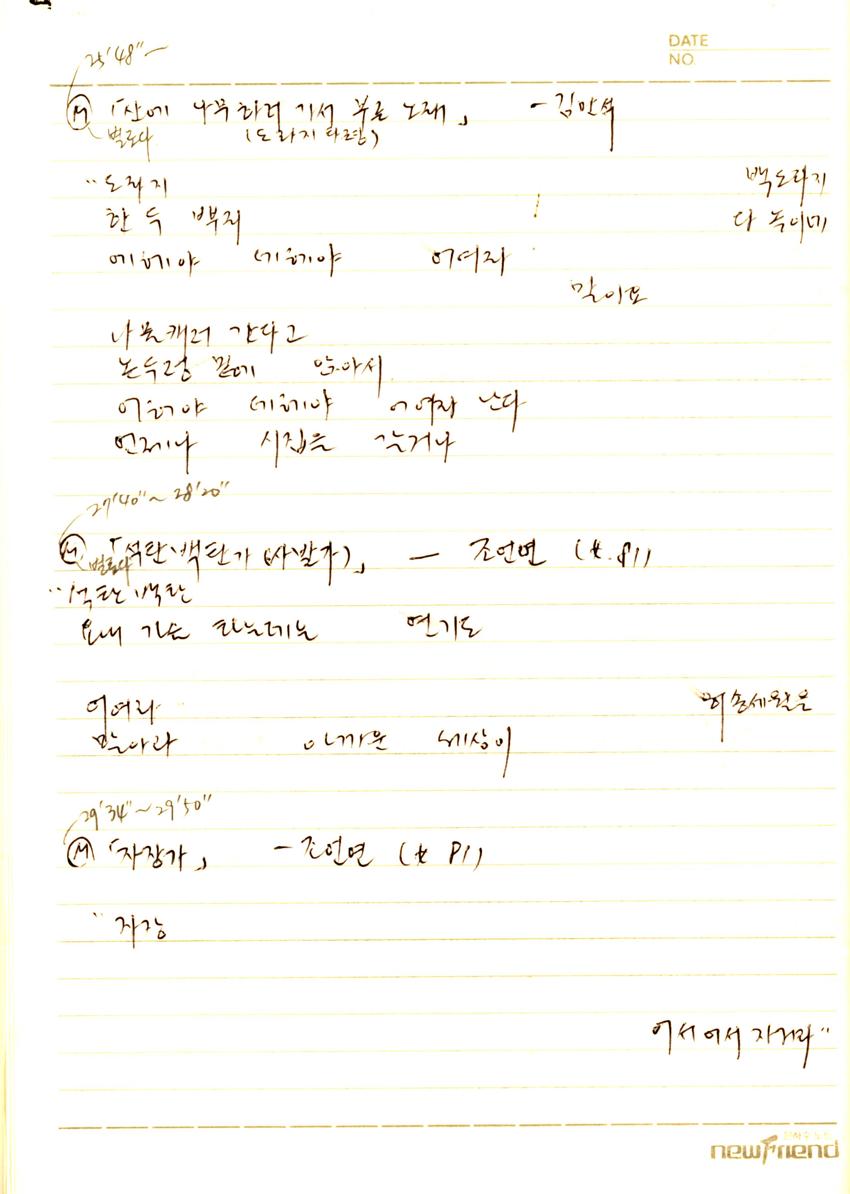 DATE
NO.
25'48"~
Ⓜ 「산에 나무하러 가서 부른 노래」 - 김만석
별로다 (도라지 타령)
"도라지 백도라지
한 두 뿌리 다 녹이네
에헤야 데헤야 어여라
말이요
나물캐러 간다고
논두렁 밑에 앉아서
어허야 데헤야 어여라 난다
언제나 시집을 갈거나
27'40"~28'20"
Ⓜ 「석탄·백탄가 (사발가)」 - 조언연 (女. 81)
별로다
"석탄 백탄
요내 가슴 타는데는 연기도
어여라 허송세월을
말아라 아까운 세상이
29'34"~29'50"
Ⓜ 「자장가」 - 조언연 (女 81)
"자장
어서 어서 자거라"
newFriend